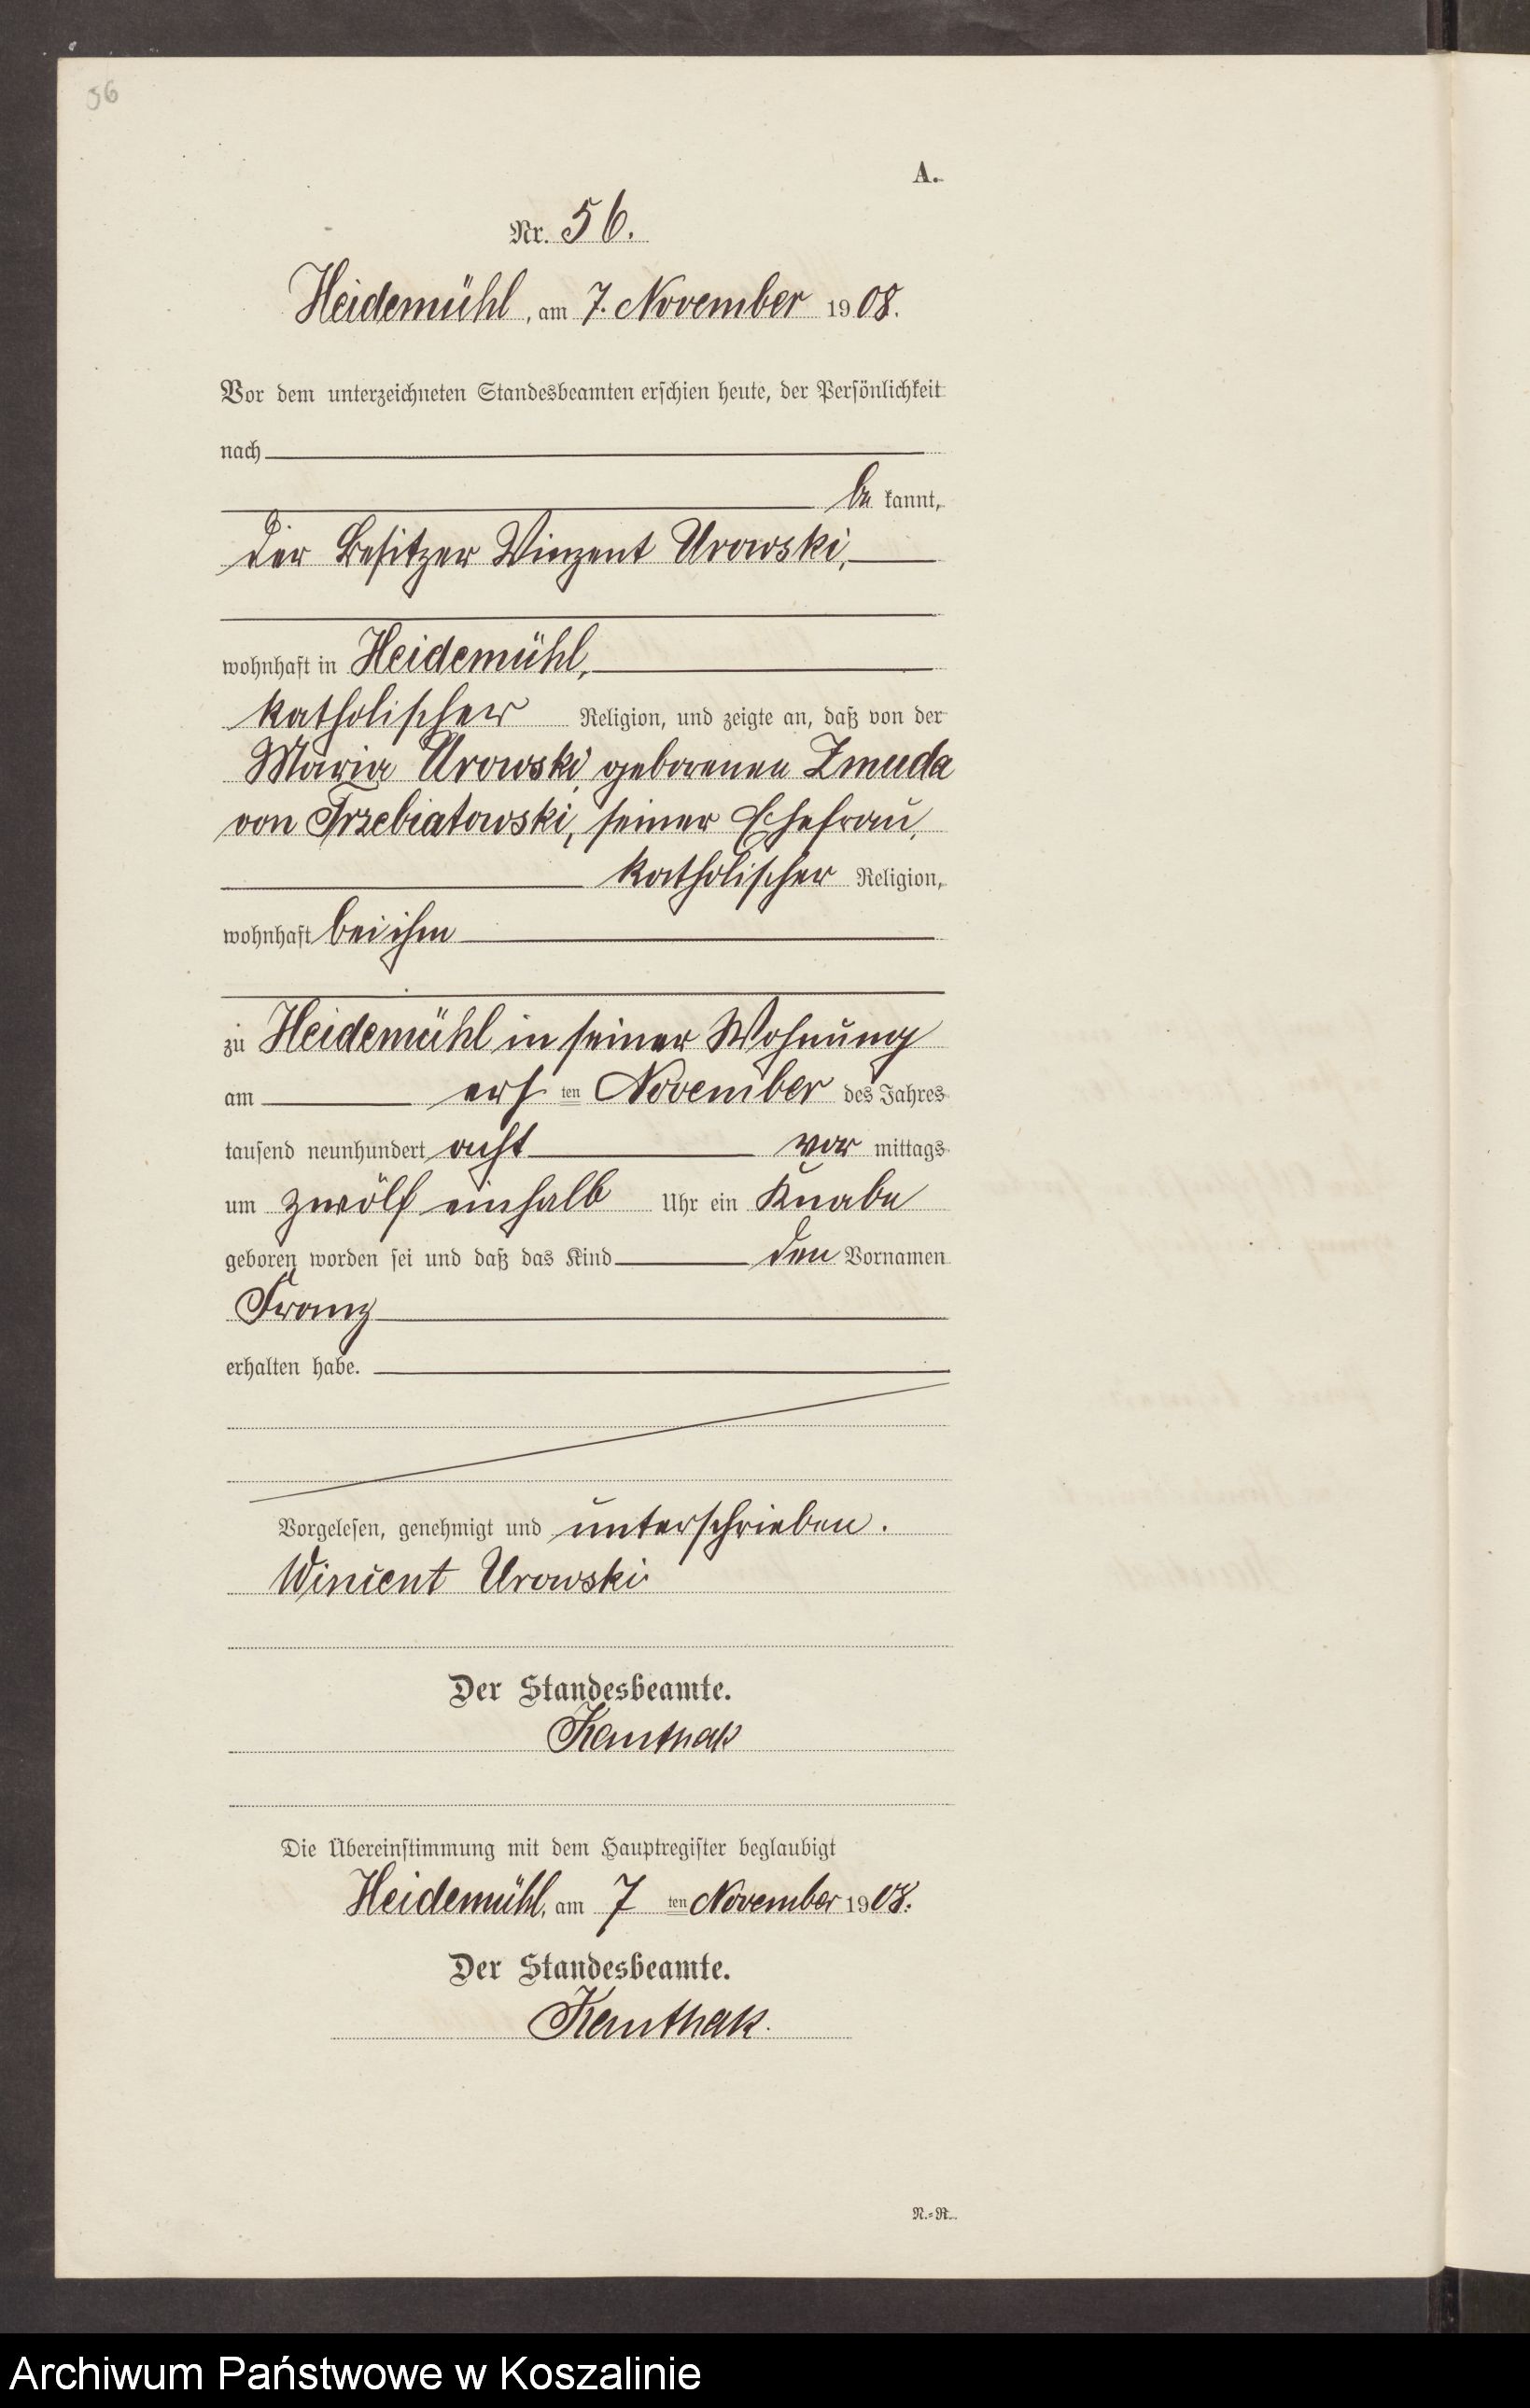 56
A.
Nr. 56.
Heidemühl, am 7. November 1908.
Vor dem unterzeichneten Standesbeamten erschien heute, der Persönlichkeit
nach
be kannt,
der Besitzer Vinzent Urowski,
wohnhaft in Heidemühl,
katholischer Religion, und zeigte an, daß von der
Maria Urowski, geborenen Zmuda
von Trzebiatowski, seiner Ehefrau,
katholischer Religion,
wohnhaft bei ihm
zu Heidemühl in seiner Wohnung
am ers ten November des Jahres
tausend neunhundert acht vor mittags
um zwölf einhalb Uhr ein Knabe
geboren worden sei und daß das Kind den Vornamen
Franz
erhalten habe.
Vorgelesen, genehmigt und unterschrieben.
Wincent Urowski
Der Standesbeamte.
Die Übereinstimmung mit dem Hauptregister beglaubigt
Heidemühl, am 7 ten November 1908.
Der Standesbeamte.
N.=R.
Archiwum Państwowe w Koszalinie